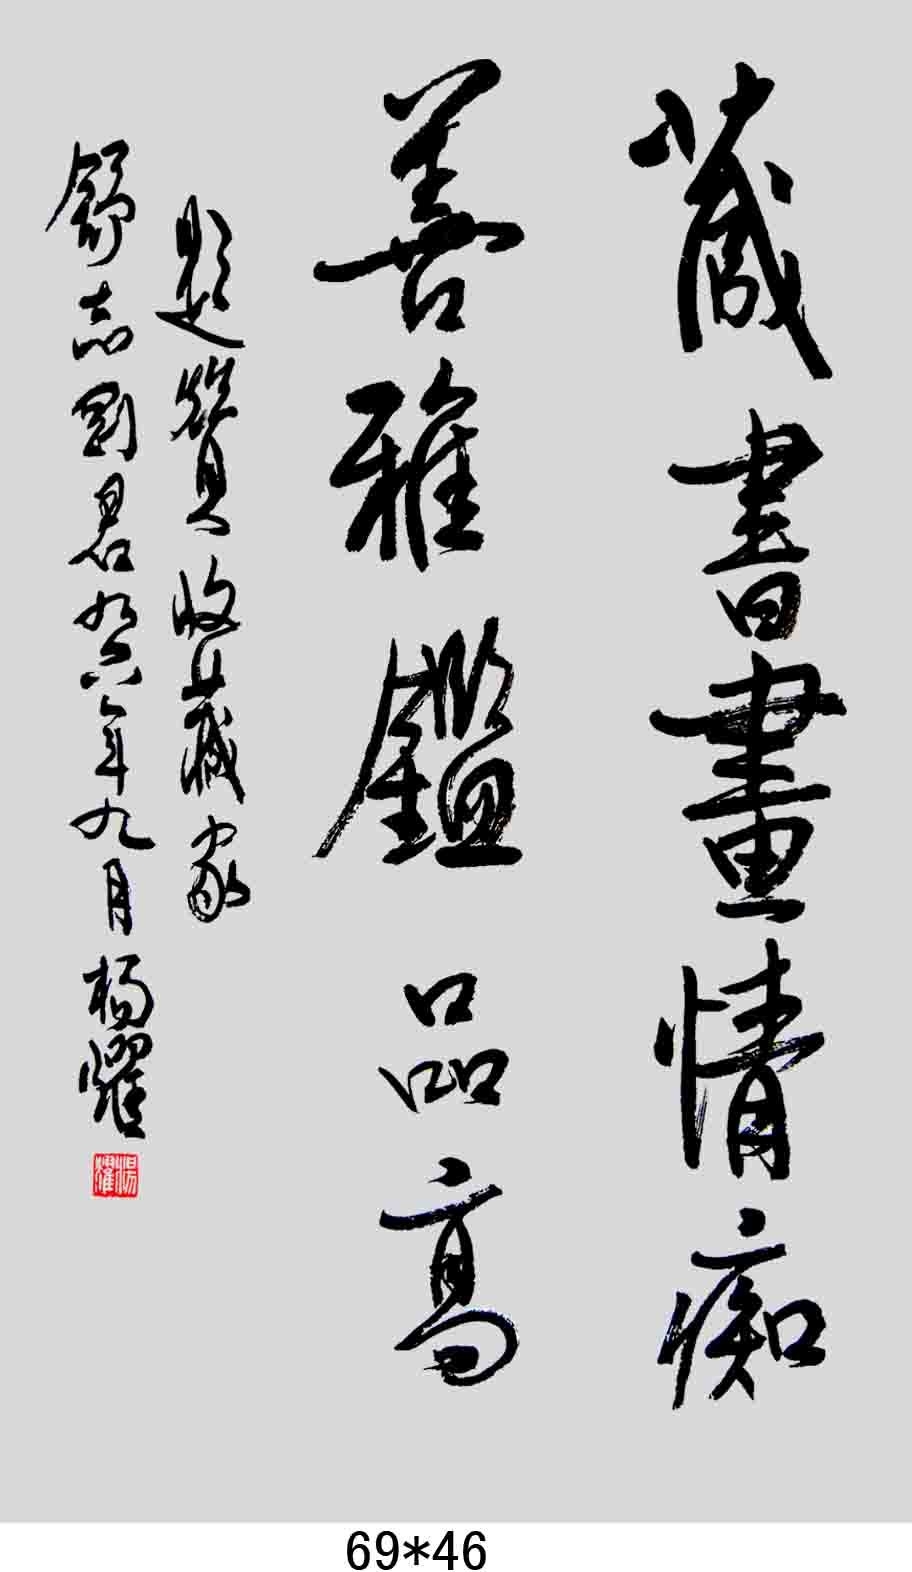 藏書畫情痴
善雅鑑品高
題贊收藏家
舒志剛君九六年九月楊耀
楊耀
69*46